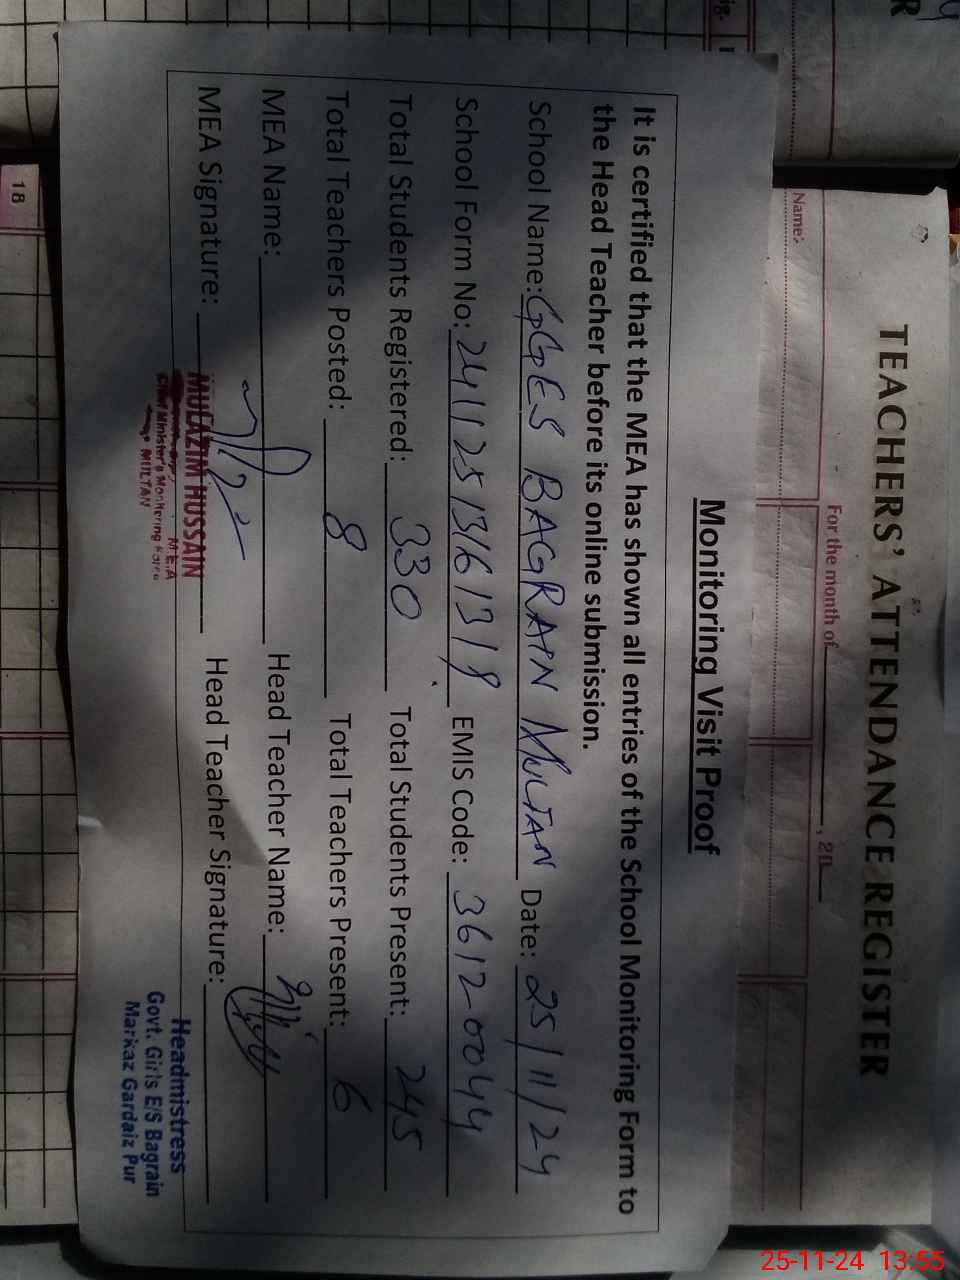 TEACHERS' ATTENDANCE REGISTER
For the month of , 20
Name:
Monitoring Visit Proof
It is certified that the MEA has shown all entries of the School Monitoring Form to
the Head Teacher before its online submission.
School Name: GGES BAGRAIN MULTAN Date: 25/11/24
School Form No: EMIS Code: 36120044
Total Students Registered: 330 Total Students Present: 245
Total Teachers Posted: 8 Total Teachers Present: 6
MEA Name: Head Teacher Name:
MEA Signature: Head Teacher Signature:
HUSSAIN
M.E.A
Chief Minister's Monitoring Force
MULTAN
Headmistress
Govt. Girls E/S Bagrain
Markaz Gardaiz Pur
18
25-11-24 13:55